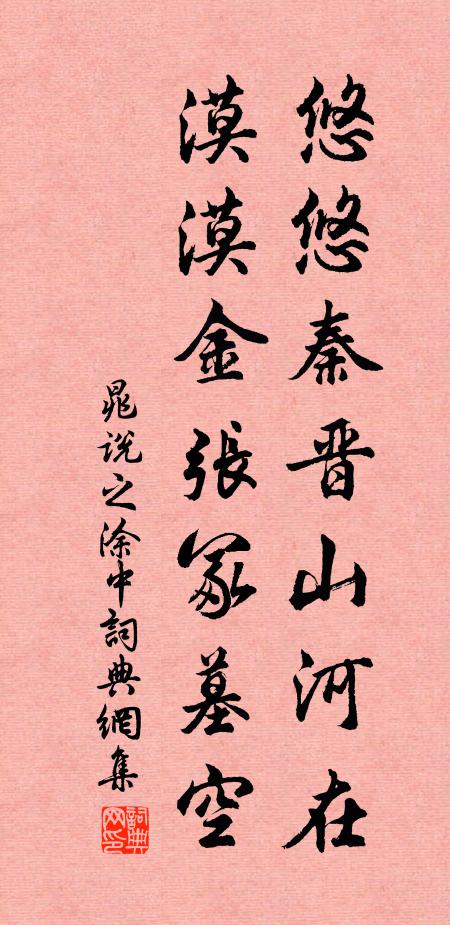 悠悠秦晋山河在
漠漠金張冢墓空
晁說之涂中詞典網集
詞典网印